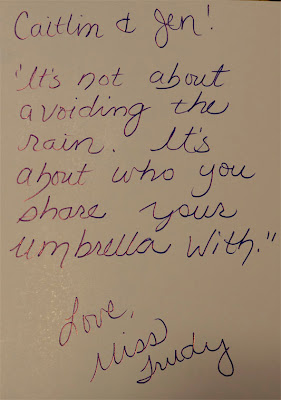 Caitlin & Jen!
"It's not about
avoiding the
rain. It's
about who you
share your
umbrella with."
Love,
Miss
Trudy